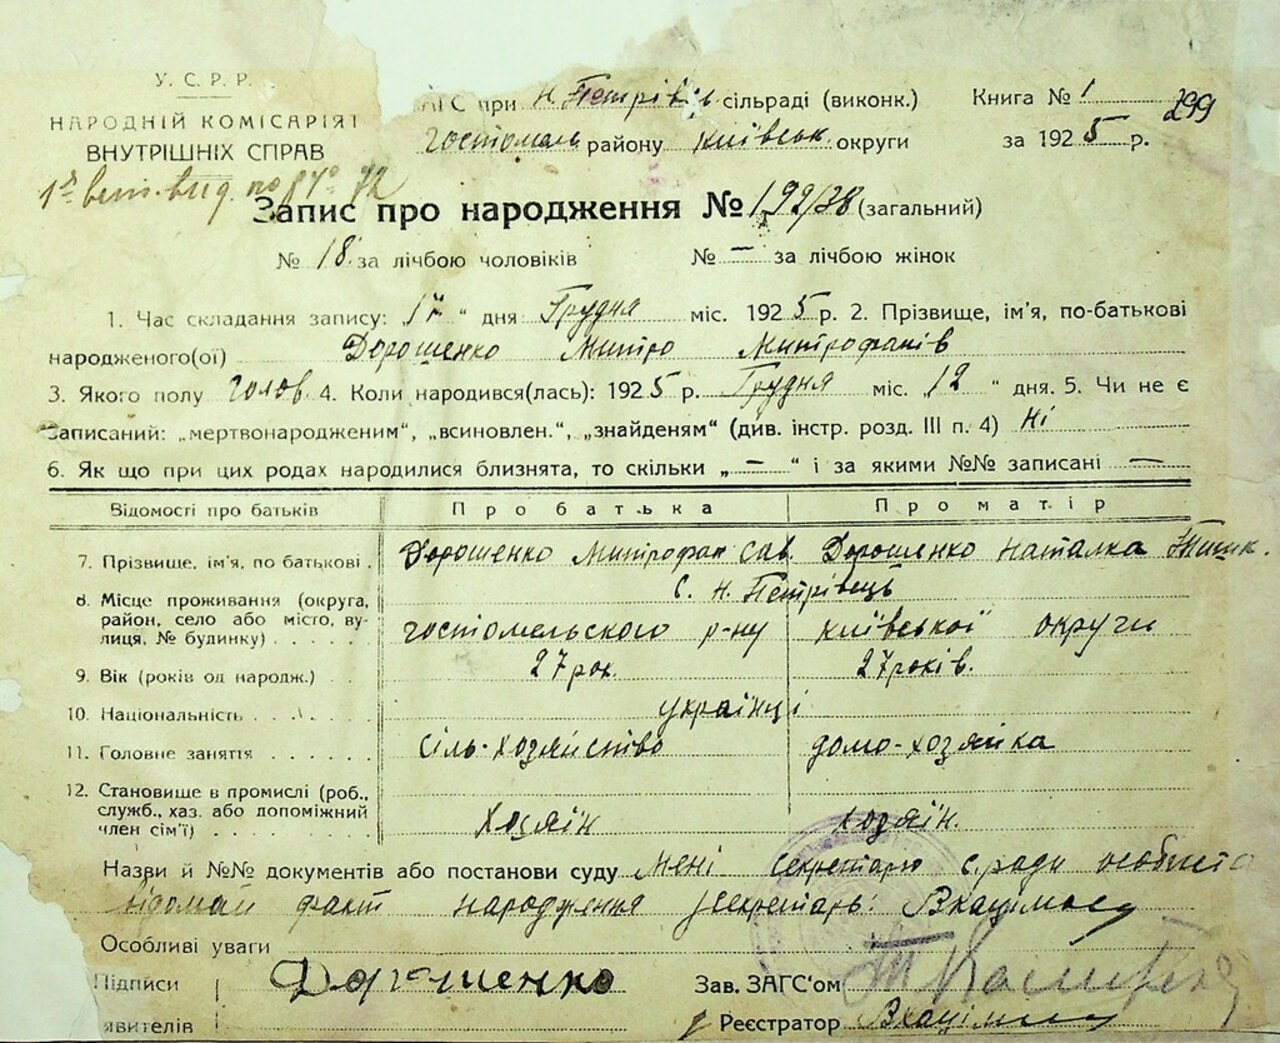 У. С. Р. Р.
НАРОДНІЙ КОМІСАРІЯТ
ВНУТРІШНІХ СПРАВ
АГС при Н. Петрівск. сільраді (виконк.) Книга № 1 299
Гостомель району Київськ. округи за 1925 р.
Запис про народження № 192/38 (загальний)
№ 18 за лічбою чоловіків № — за лічбою жінок
1. Час складання запису: „17“ дня Грудня міс. 1925 р. 2. Прізвище, ім'я, по-батькові
народженого(ої) Дорошенко Митро Митрофанів
3. Якого полу голов. 4. Коли народився(лась): 1925 р. Грудня міс. „12“ дня. 5. Чи не є
записаний: „мертвонародженим“, „всиновлен.“, „знайденям“ (див. інстр. розд. III п. 4) Ні
6. Як що при цих родах народилися близнята, то скільки „—“ і за якими №№ записані —
Відомості про батьків Про батька Про матір
7. Прізвище, ім'я, по батькові Дорошенко Митрофан Сав. Дорошенко Наталка
8. Місце проживання (округа, С. Н. Петрівець
район, село або місто, ву-
лиця, № будинку) гостомельского р-ну київської округи
9. Вік (років од народж.) 27 рок. 27 років.
10. Національність українці
11. Головне заняття сіль-хозяйство домо-хозяйка
12. Становище в промислі (роб.,
служб., хаз. або допоміжний
член сім'ї) хозяїн хозяїн.
Назви й №№ документів або постанови суду Мені секретарю с.ради особисто
відомий факт народження секретарь:
Особливі уваги
Підписи Дорошенко Зав. ЗАГС'ом
явителів Реєстратор